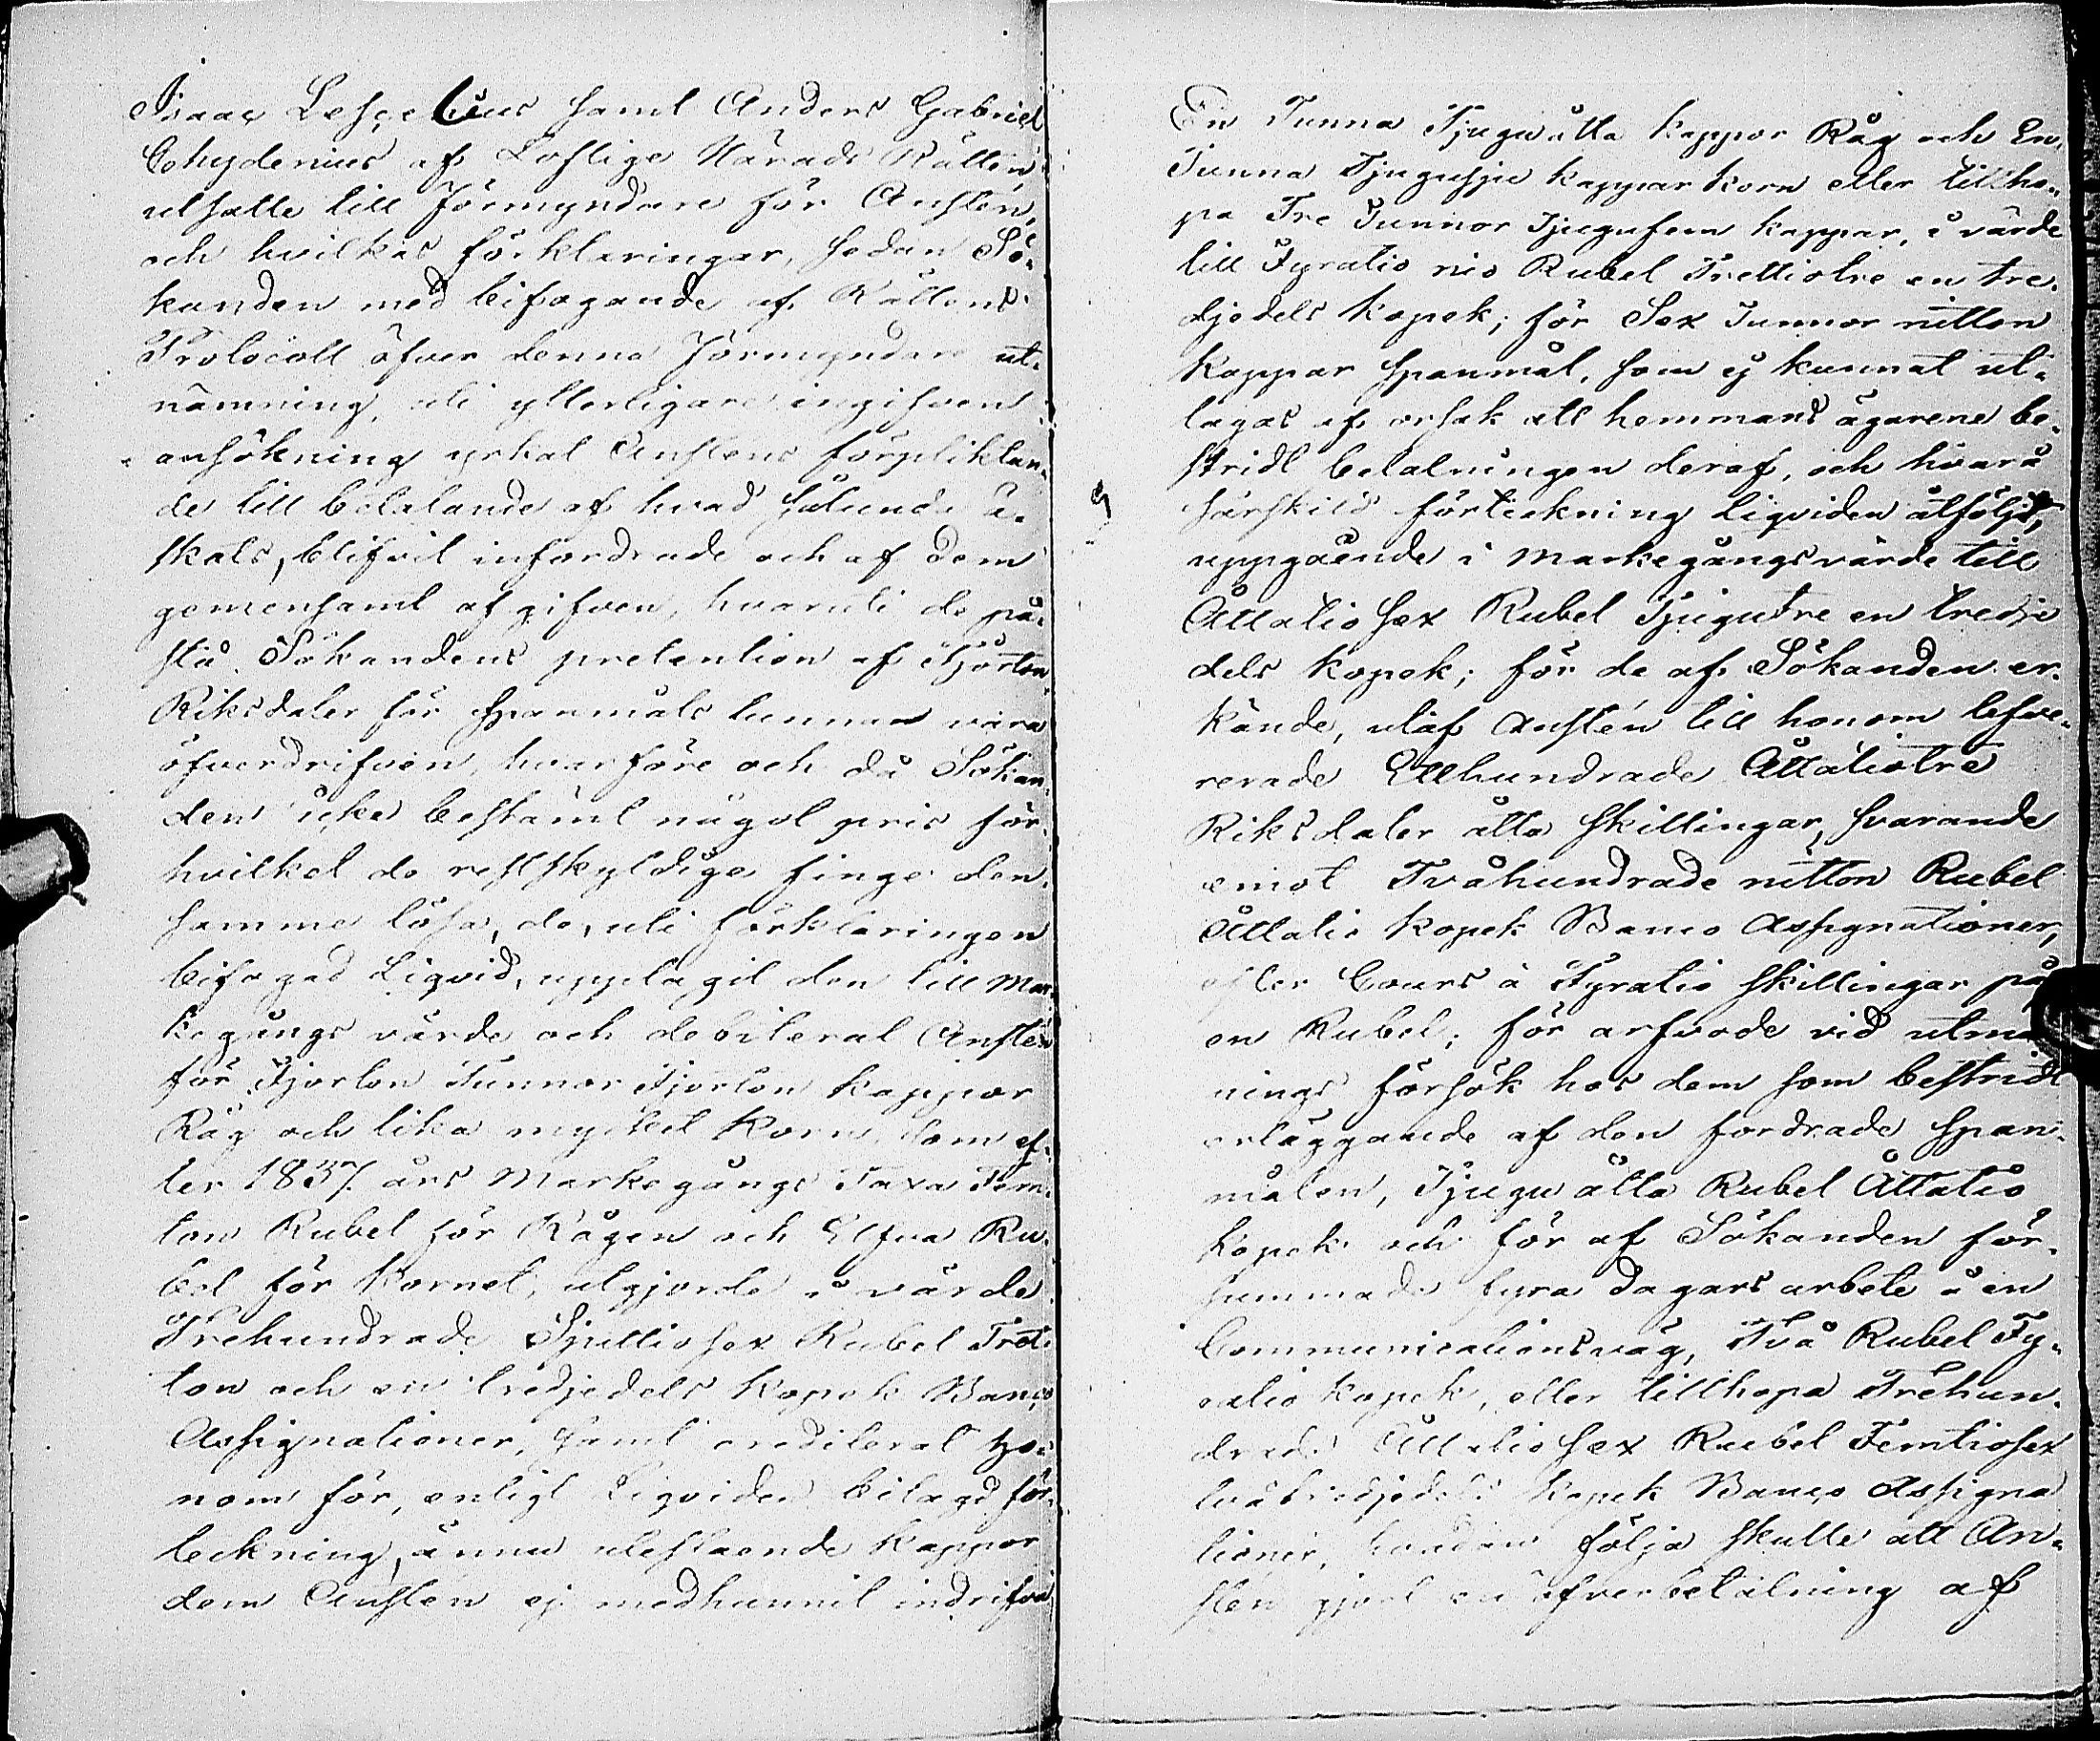 Isaac Lescelius samt Anders Gabriel
Chydenius af Loflige Härads Rätten
utsatte till Förmyndare för Anstén,
och hvilkas förklaringar, sedan Sö-
kanden med bifogande af Rättens
Protocoll öfver denna Förmyndare ut-
nämning, uti ytterligare ingifven
ansökning yrkatAnsténs förpliktan-
de till betalande af hvad sålunda ä-
skats, blifvit infordrade och af dem
gemensamt afgifven, hvaruti de på-
stå Sökandens pretention af Fjorton
Riksdaler för spanmåls tunnan vara
öfverdrifven, hvarföre och då Sökan-
den icke bestämt något pris för
hvilket de restskyldige finge den-
samma lösa, de, uti förklaringen
bifogad Liqvid, upptagit den till Mar-
kegångs värde och debiterat Anstén
för Fjorton Tunnor Fjorton kappor
Råg och lika mycket Korn, dem ef-
ter 1837 års Markegångs Taxa Fem-
ton Rubel för Rågen och Elfva Ru-
bel för Kornet, utgjorde i värde
Trehundrade Sjuttiosex Rubel Tret-
ton och en tredjedels Kopek Banco
Assignationer, samt crediterat ho-
nom för, enligt Liqviden bilagd för-
teckning, ännu utestående kappor
dem Anstén ej medhunnit indrifva
En Tunna Tjuguåtta kappor Råg och En
Tunna Tjugusju kappar korn eller tillho-
pa Tre Tunnor Tjugufem kappar, i värde
till Fyratio nio Rubel Trettiotre en tre-
djedels kopek; för Sex Tunnor nitton
Kappar spanmål, som ej kunnat ut-
tagas af orsak att hemmans ägarene be-
stridt betalningen deraf, och hvarå
särskild förteckning liqviden åtföljt,
uppgående i markegångsvärde till
Åttatiosex Rubel Tjugutre en tredje
dels Kopek; för de af Sökanden er-
kände, utaf Anstén till honom lefve-
rerade Etthundrade Åttatiotre
Riksdaler åtta skillingar, svarande
emot Tvåhundrade nitton Rubel
Åttatio Kopek Banco Assignationer,
efter Cours à Fyratio skillingar på
en Rubel; för arfvode vid utmä
nings försök hos dem som bestridt
erläggande af den fordrade span-
målen, Tjuguåtta Rubel Åttatio
kopek och för af Sökanden för-
summade fyra dagars arbete å en
Communicationsväg, Två Rubel Fy-
ratio kopek, eller tillhopa Trehun-
drade Åttatiosex Rubel Femtiosex
två tredjedels Kopek Banco Assigna
tioner, hvadan följa skulle att An-
stén gjort en öfverbetalning af